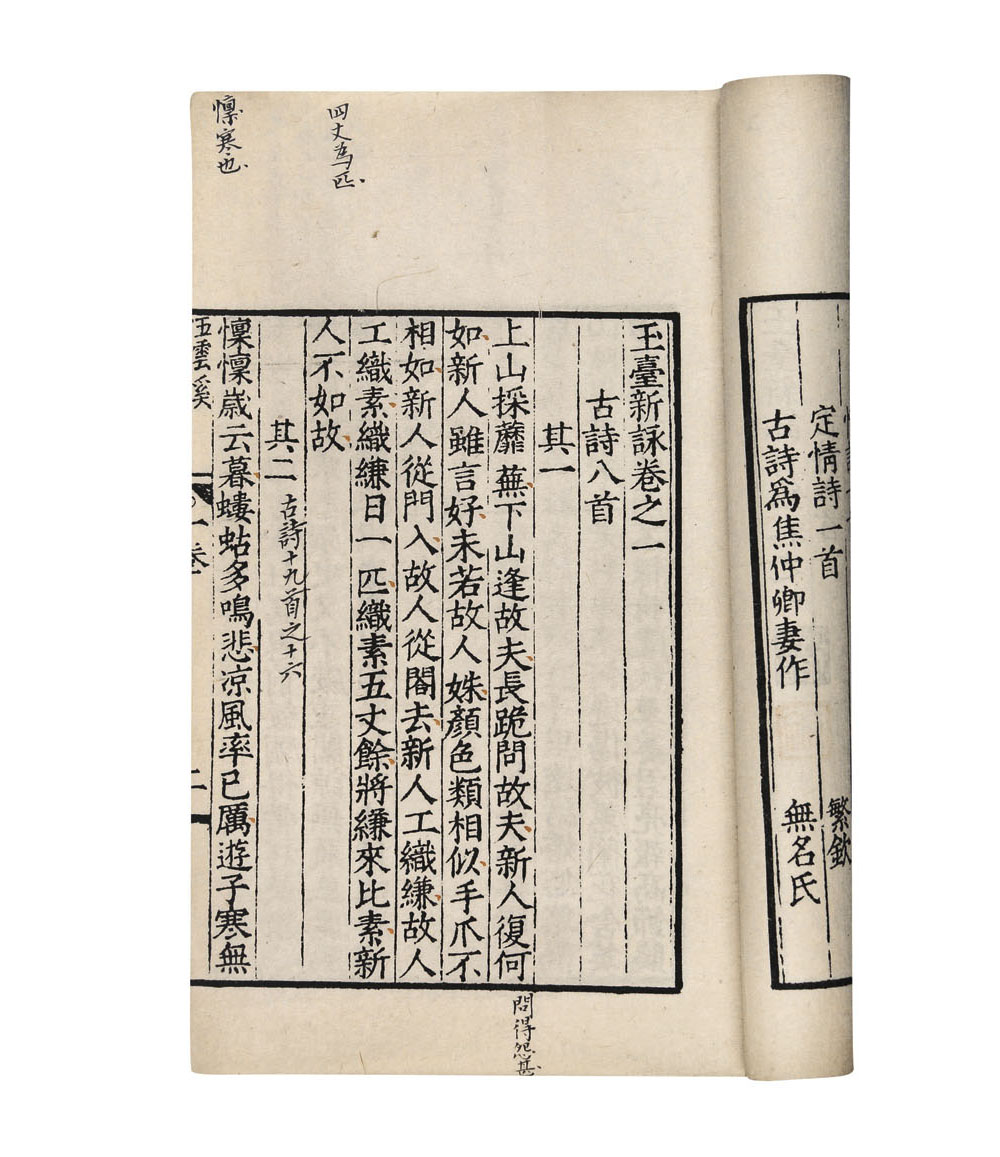 定情詩一首 繁欽
古詩爲焦仲卿妻作 無名氏
玉臺新詠卷之一
古詩八首
其一
上山採蘼蕪下山逢故夫長跪問故夫新人復何
如新人雖言好未若故人姝顏色類相似手爪不
相如新人從門入故人從閤去新人工織縑故人
工織素織縑日一匹織素五丈餘將縑來比素新
人不如故
其二 古詩十九首之十六
懍懍歲云暮螻蛄多鳴悲凉風率已厲遊子寒無
五雲溪 一卷 二
問得怨甚
四丈為匹
懍寒也